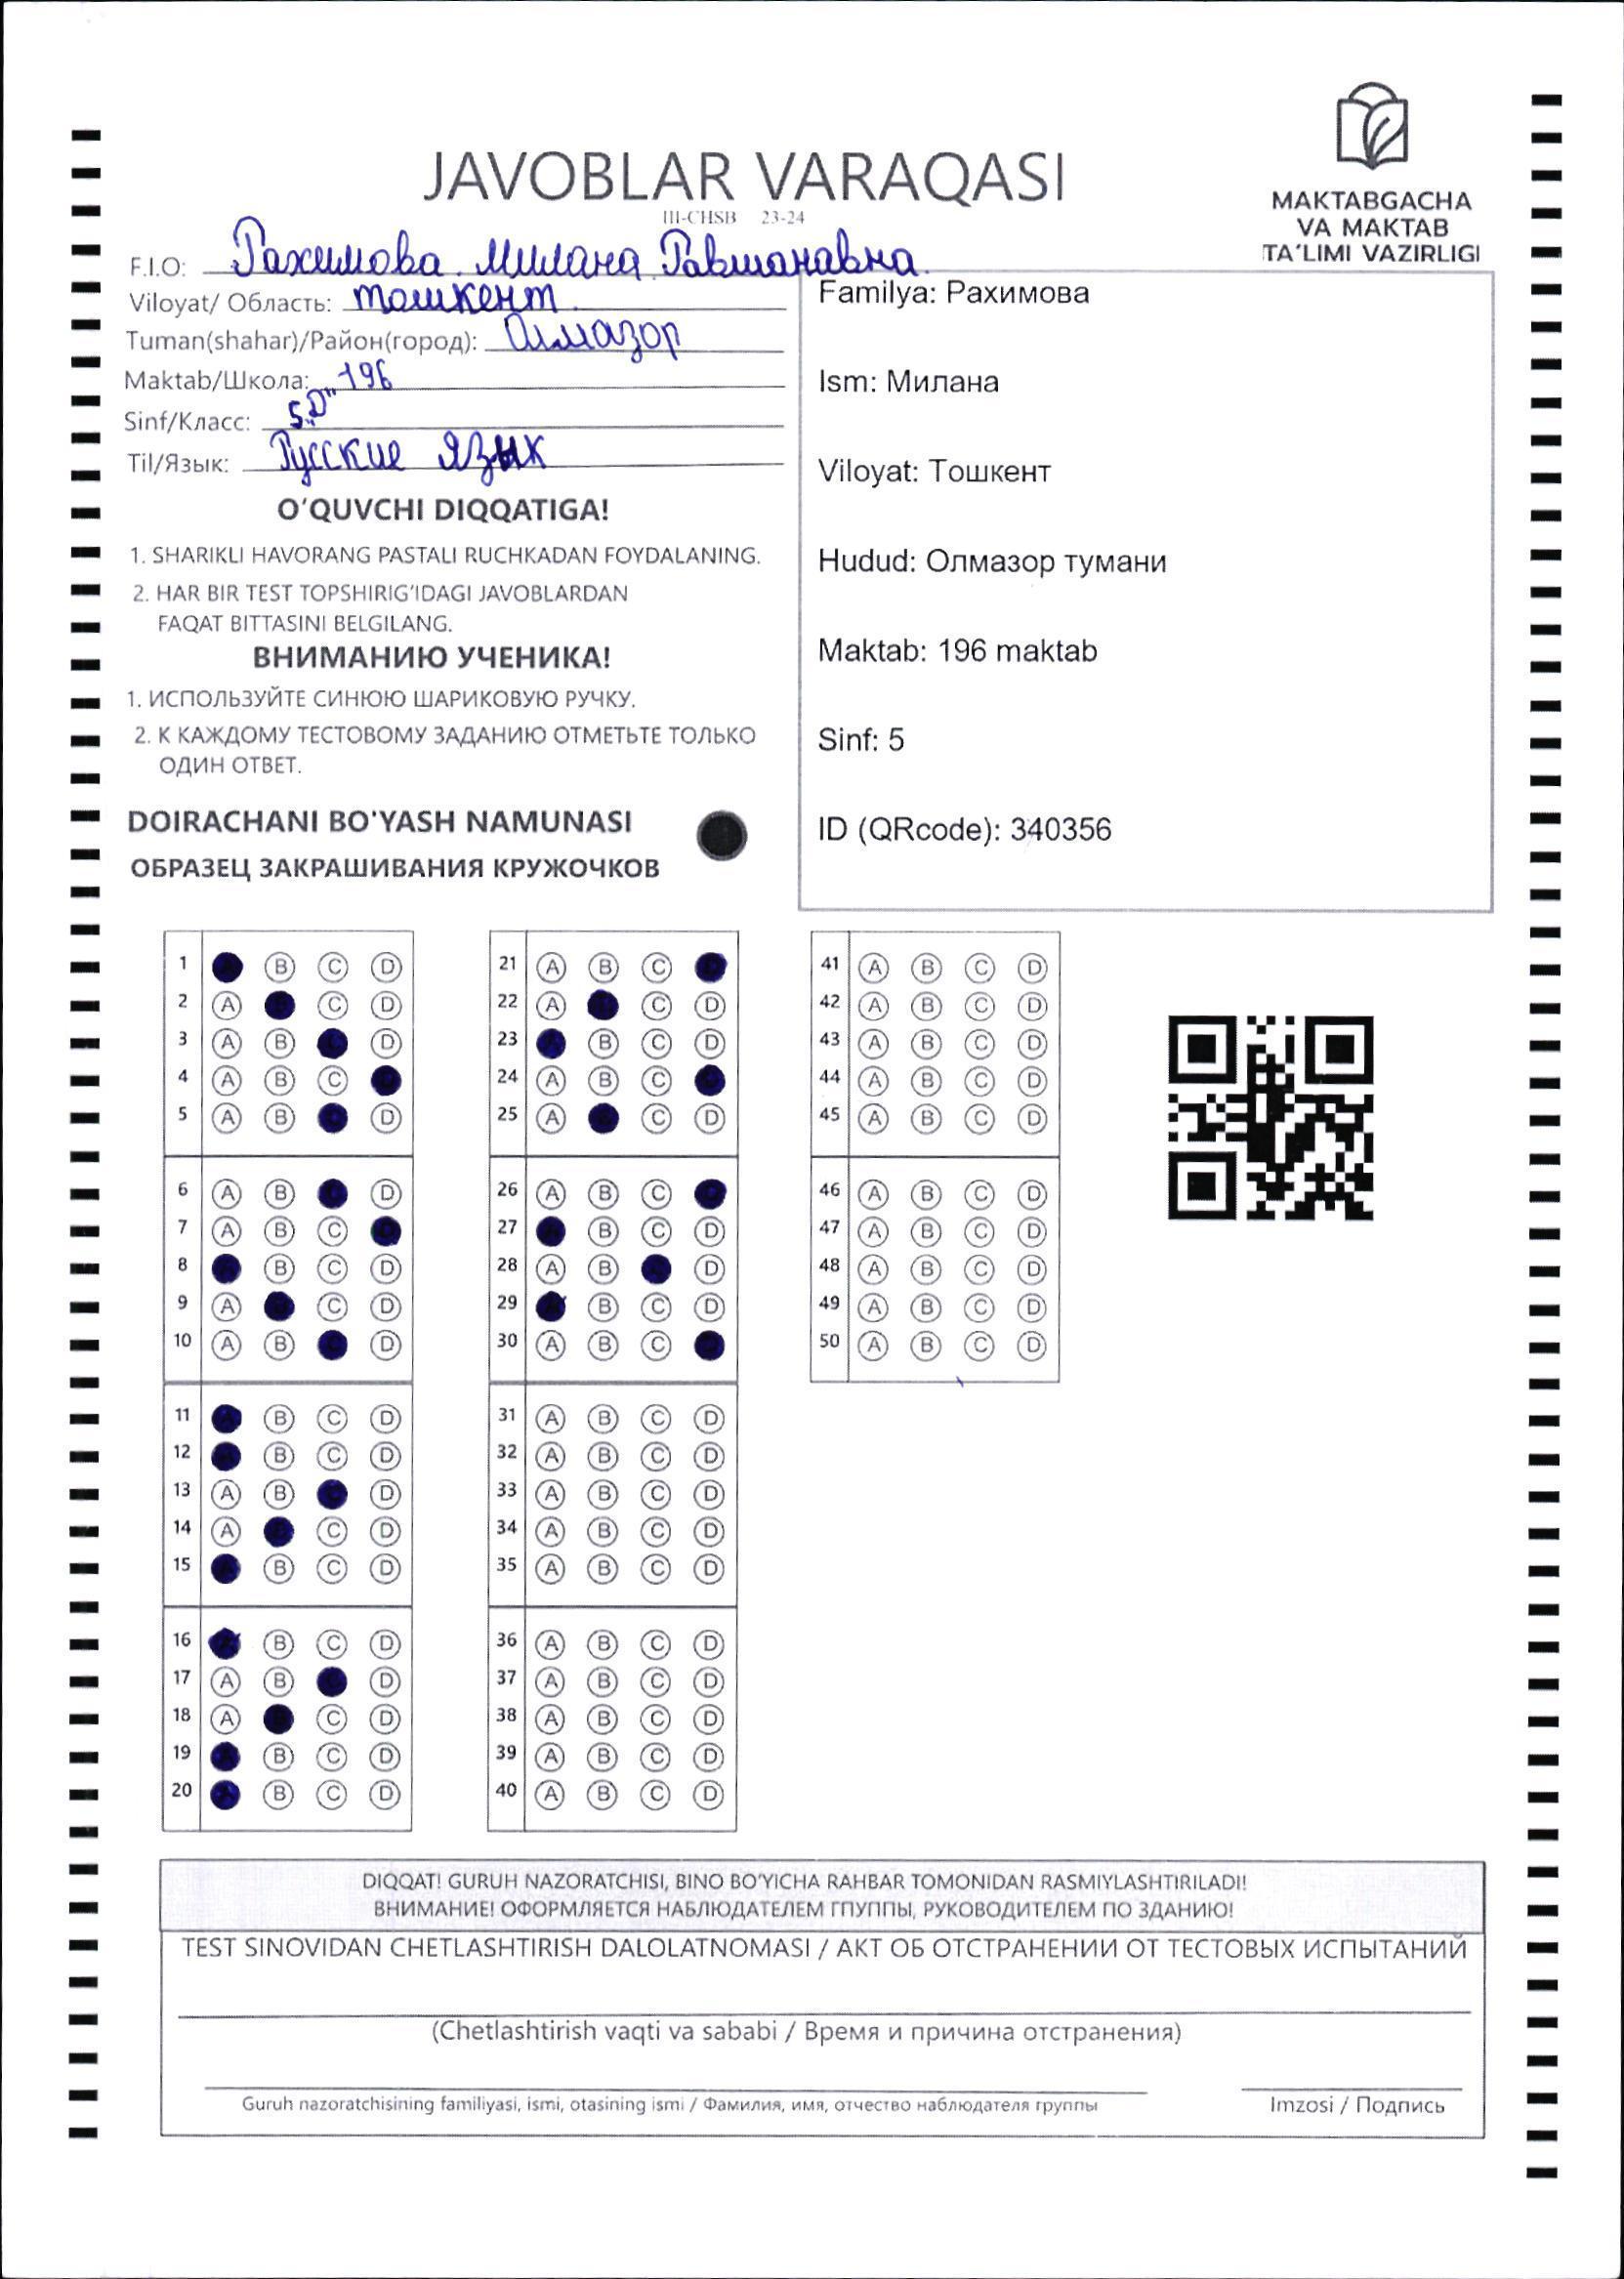 JAVOBLAR VARAQASI
III-CHSB 23-24
MAKTABGACHA
VA MAKTAB
TA'LIMI VAZIRLIGI
F.I.O: Рахимова Милана Равшанавна
Viloyat/ Область: Ташкент
Tuman(shahar)/Район(город): Олмазор
Maktab/Школа: 196
Sinf/Класс: 5„D"
Til/Язык: Русские язык
O'QUVCHI DIQQATIGA!
1. SHARIKLI HAVORANG PASTALI RUCHKADAN FOYDALANING.
2. HAR BIR TEST TOPSHIRIG'IDAGI JAVOBLARDAN
FAQAT BITTASINI BELGILANG.
ВНИМАНИЮ УЧЕНИКА!
1. ИСПОЛЬЗУЙТЕ СИНЮЮ ШАРИКОВУЮ РУЧКУ.
2. К КАЖДОМУ ТЕСТОВОМУ ЗАДАНИЮ ОТМЕТЬТЕ ТОЛЬКО
ОДИН ОТВЕТ.
DOIRACHANI BO'YASH NAMUNASI
ОБРАЗЕЦ ЗАКРАШИВАНИЯ КРУЖОЧКОВ
Familya: Рахимова
Ism: Милана
Viloyat: Тошкент
Hudud: Олмазор тумани
Maktab: 196 maktab
Sinf: 5
ID (QRcode): 340356
1 B C D
2 A C D
3 A B D
4 A B C
5 A B D
6 A B D
7 A B C
8 B C D
9 A C D
10 A B D
11 B C D
12 B C D
13 A B D
14 A C D
15 B C D
16 B C D
17 A B D
18 A C D
19 B C D
20 B C D
21 A B C
22 A C D
23 B C D
24 A B C
25 A C D
26 A B C
27 B C D
28 A B D
29 B C D
30 A B C
31 A B C D
32 A B C D
33 A B C D
34 A B C D
35 A B C D
36 A B C D
37 A B C D
38 A B C D
39 A B C D
40 A B C D
41 A B C D
42 A B C D
43 A B C D
44 A B C D
45 A B C D
46 A B C D
47 A B C D
48 A B C D
49 A B C D
50 A B C D
DIQQAT! GURUH NAZORATCHISI, BINO BO'YICHA RAHBAR TOMONIDAN RASMIYLASHTIRILADI!
ВНИМАНИЕ! ОФОРМЛЯЕТСЯ НАБЛЮДАТЕЛЕМ ГПУППЫ, РУКОВОДИТЕЛЕМ ПО ЗДАНИЮ!
TEST SINOVIDAN CHETLASHTIRISH DALOLATNOMASI / АКТ ОБ ОТСТРАНЕНИИ ОТ ТЕСТОВЫХ ИСПЫТАНИЙ
(Chetlashtirish vaqti va sababi / Время и причина отстранения)
Guruh nazoratchisining familiyasi, ismi, otasining ismi / Фамилия, имя, отчество наблюдателя группы
Imzosi / Подпись